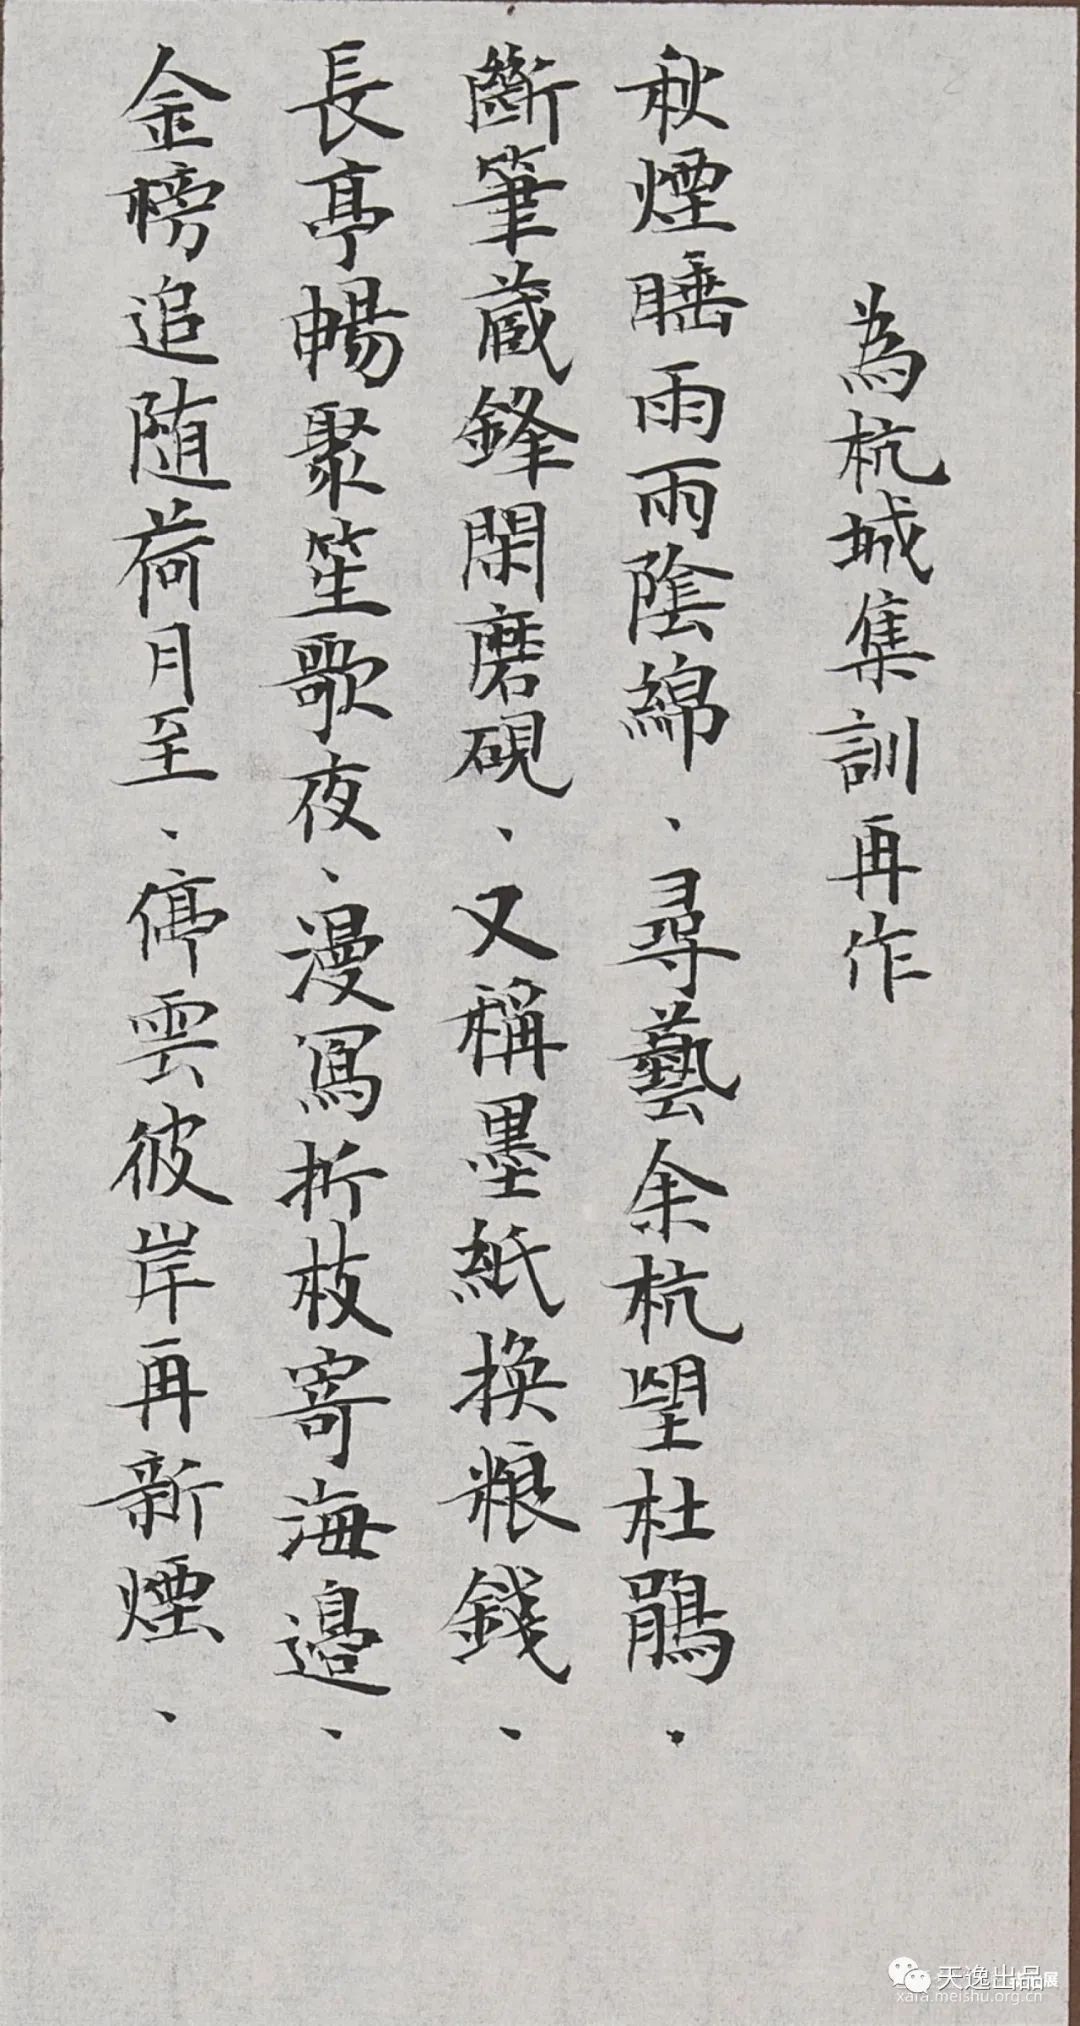 為杭城集訓再作
秋煙睡雨雨陰綿、尋藝余杭望杜鵑、
斷筆蔵鋒閑磨硯、又稱墨紙換粮錢、
長亭暢聚笙歌夜、漫寫折枝寄海邉、
金榜追随荷月至、停雲彼岸再新煙、
天逸出品
展
xafa.meishu.org.cn